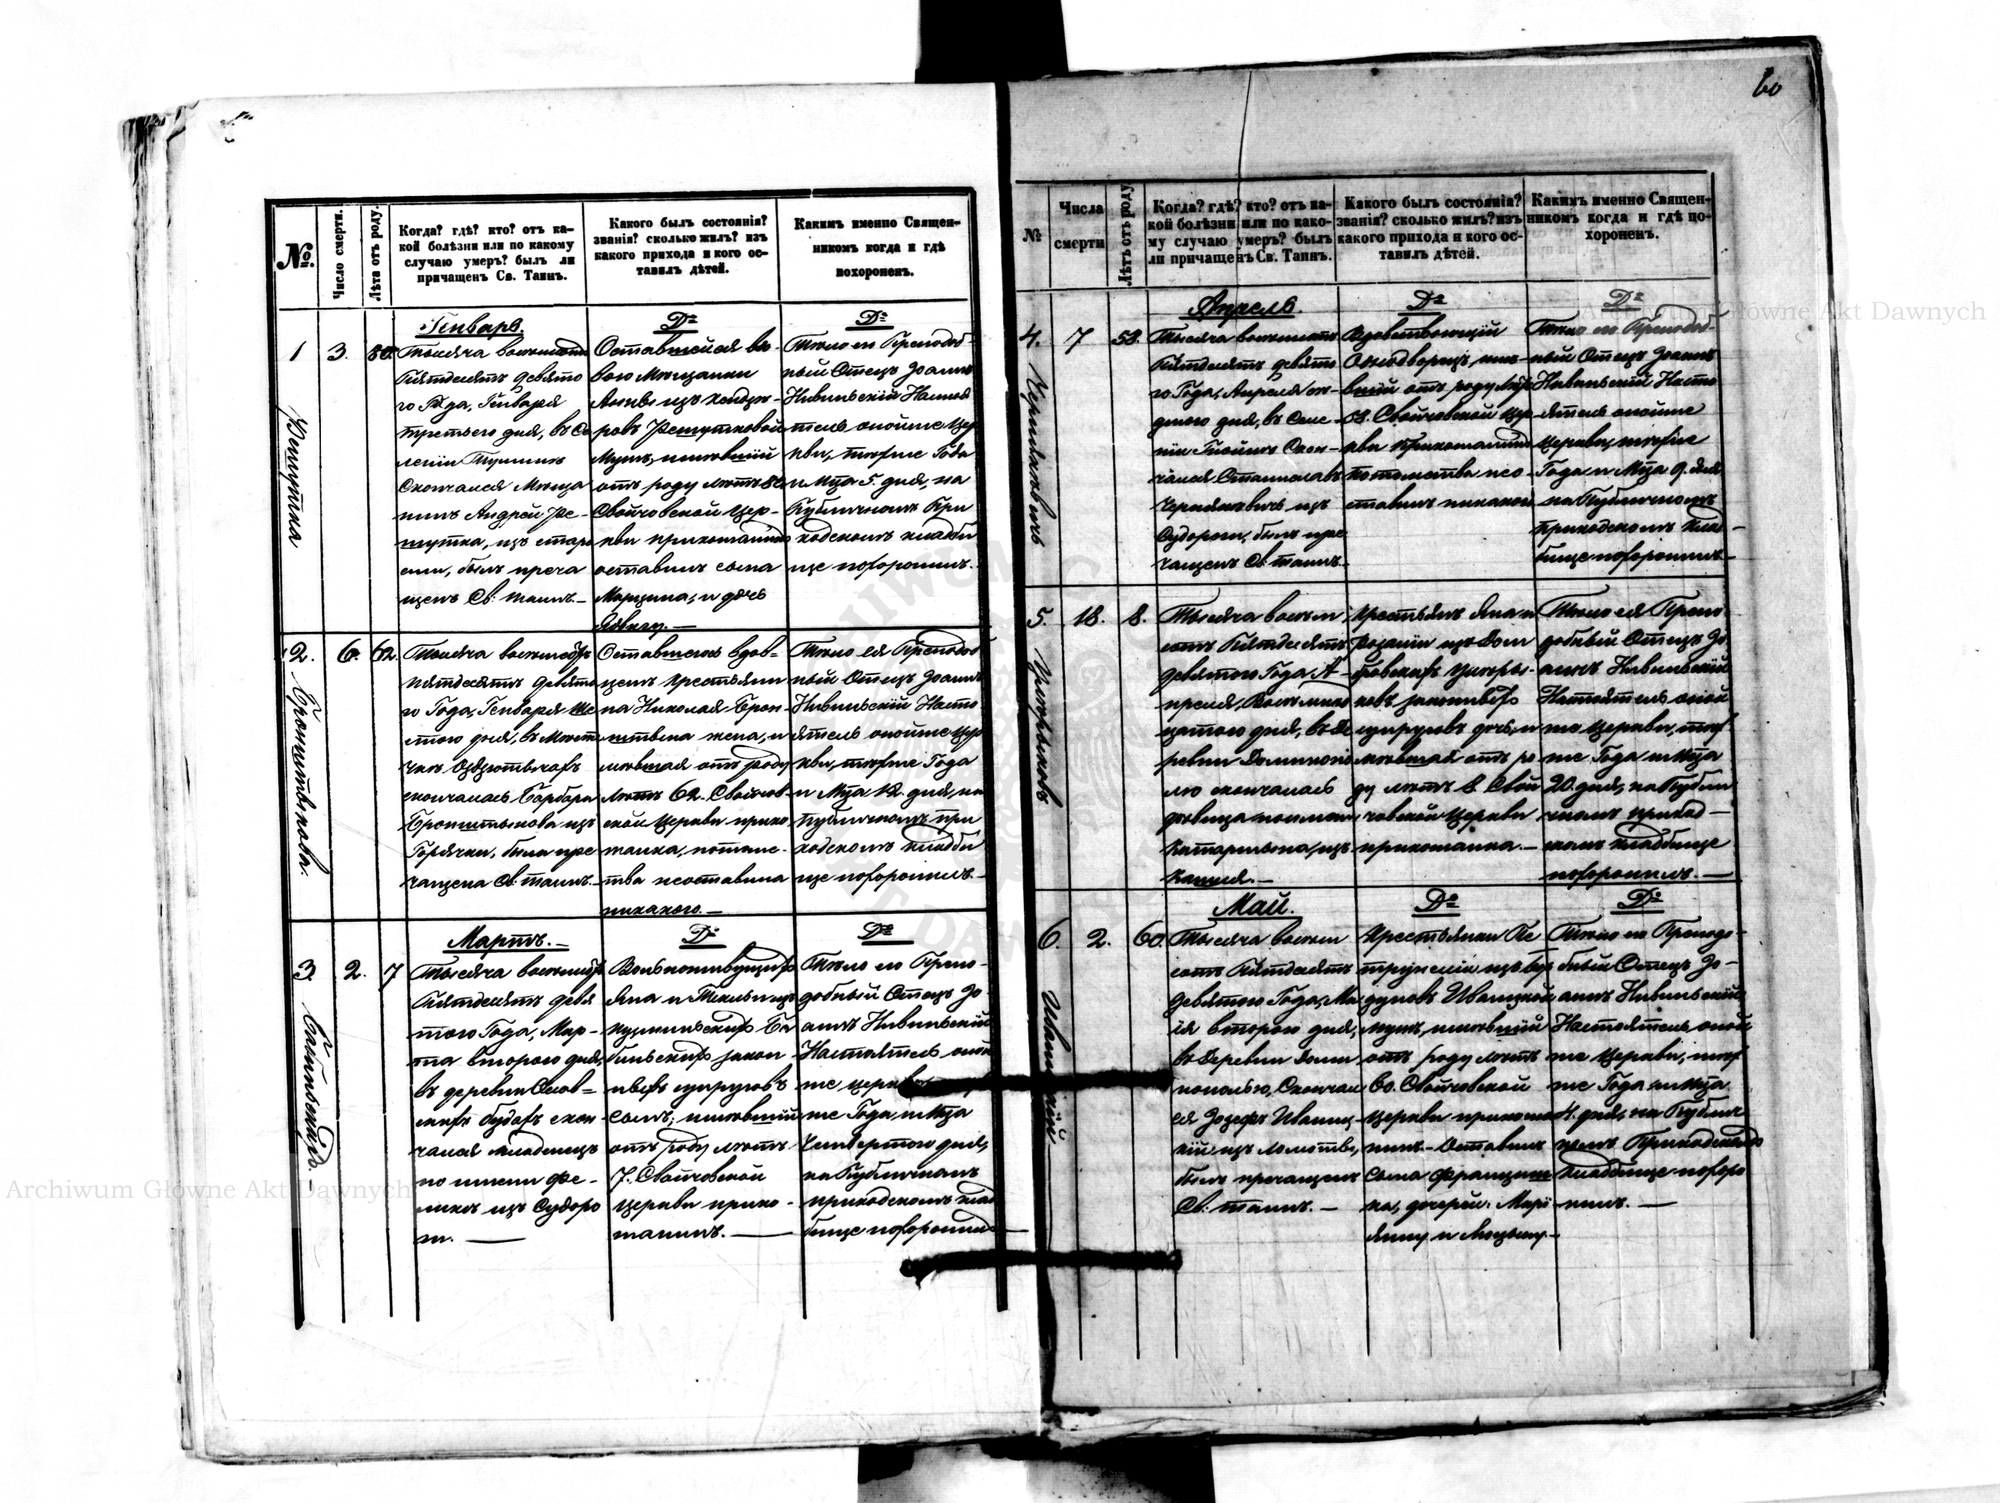 60
№
Число смерти.
Лѣта отъ роду.
Когда? гдѣ? кто? отъ ка-
кой болѣзни или по какому
случаю умеръ? былъ ли
причащенъ Св. Таинъ.
Какого былъ состоянія?
званія? сколько жилъ? изъ
какого прихода и кого ос-
тавилъ дѣтей.
Какимъ именно Священ-
никомъ когда и гдѣ
похороненъ.
Генварь.
Dº
Dº
1
3.
80.
Решутка
Тысяча восемьсотъ
Пятдесятъ девято
го Года, Генваря
третьего дня, въ Се
леніи
Скончался Мѣща
нинъ Андрей Ре-
шутка, изъ старо
сти, былъ прича
щенъ Св: таинъ.
Оставшейся вдо
вою Мѣщанки
Анны изъ
ровъ Решутковой
Мужъ, имѣвшій
отъ роду лѣтъ 80.
Свойчовской Цер-
кви прихожанинъ
оставилъ сына
Марцина, и дочь
Ядвигу.
Тѣло его Преподоб-
ный Отецъ Іоаннъ
Нивинскій Настоя
тель оной же Цер
кви, тогоже Года
и Мца 5. дня, на
Публичномъ При
ходскомъ кладби
ще похоронилъ.
2.
6.
62.
Бронштькова.
Тысяча восемьсотъ
пятдесятъ девято
го Года, Генваря ше
стого дня, въ Мѣсте
чкѣ
скончалась Барбара
изъ
Горячки, была при
чащена Св. таинъ.
Оставшегося вдов=
цемъ Крестьяни
на Николая Брон-
жена, и
мѣвшая отъ роду
лѣтъ 62. Свойчов-
ской Церкви прихо
жанка, потомс-
тва неоставила
никакого.
Тѣло ея Преподоб
ный Отецъ Іоаннъ
Нивинскій Насто-
ятель оной же Цер
кви, тогоже Года
и Мца 12. дня, на
публичномъ при
ходскомъ кладби
ще похоронилъ.
Мартъ.
Dº
Dº
3
2.
7
Тысяча восемьсотъ
Пятдесятъ девя
того Года, Мар-
та второго дня,
въ деревни Осов=
скихъ будахъ скон
чался младенецъ
по имени Фе-
ликсъ изъ Судоро
ги.
Яна и Теклы изъ
закон
ныхъ супруговъ
сынъ, имѣвшій
отъ роду лѣтъ
7. Свойчовской
Церкви прихо-
жанинъ.
Тѣло его Препо-
добный Отецъ Іо-
аннъ Нивинскій
Настоятель оной
же Церкви
же Года и Мца
Четвертого дня,
на Публичномъ
приходскомъ клад
бище похоронилъ
№
Числа
смерти
Лѣтъ отъ роду
Когда? гдѣ? кто? отъ ка-
кой болѣзни или по како-
му случаю умеръ? былъ
ли причащенъ Св. Таинъ.
Какого былъ состоянія?
званія? сколько жилъ? изъ
какого прихода и кого ос-
тавилъ дѣтей.
Какимъ именно Священ-
никомъ когда и гдѣ по-
хороненъ.
Апрель.
Dº
Dº
4.
7
58.
Чернякевичъ
Тысяча восемьсотъ
Пятдесятъ девято
го Года, Апреля се-
дмого дня, въ Селе-
ніи Скон-
чался Станиславъ
Чернякевичъ изъ
Судороги, былъ при
чащенъ Св. таинъ.
Вдовствующій
Однодворецъ, имѣ-
вшій отъ роду лѣтъ
58. Свойчовской Цер-
кви Прихожанинъ
потомства нео-
ставилъ никакого
Тѣло его Преподоб-
ный Отецъ Іоаннъ
Нивинскій Насто
ятель оной же
Церкви, тогоже
Года и Мца 9. дня
на Публичномъ
приходскомъ клад-
бище похоронилъ
5.
18.
8.
Тысяча восемь
сотъ Пятдесятъ
девятого Года А-
преля, Восемнад
цатого дня, въ де
ревни Доминопо
лю скончалась
дѣвица именем
Катарина, изъ
Кашля.
Крестьянъ Яна и
Розаліи изъ Дом
законныхъ
супруговъ дочь, и
мѣвшая отъ ро
ду лѣтъ 8. Свой
човской Церкви
прихожанка.
Тѣло ея Препо-
добный Отецъ Іо
аннъ Нивинскій
Настоятель оной
же Церкви, того
же Года и Мца
20. дня, на Публи
чномъ приход-
скомъ кладбище
похоронилъ.
Май.
Dº
Dº
6.
2.
60.
Иваницкій
Тысяча восем
сотъ Пятдесятъ
девятого Года, Ма
ія второго дня,
въ деревни Доми
нополю, Скончал
ся Іозефъ Иваниц-
кій изъ ломоты,
былъ причащенъ
Св: таинъ.
Крестьянки Пе
трунели изъ
Иваницкой
мужъ, имѣвшій
отъ роду лѣтъ
60. Свойчовской
Церкви прихожа
нинъ. Оставилъ
сына Францишк
ка, дочерей: Марі
янну и Люцыну
Тѣло его Преподо-
бный Отецъ Іо-
аннъ Нивинскій
Настоятель оной
же Церкви, того
же Года и Мца
4. дня, на Публич
номъ Приходскомъ
кладбище похоро
нилъ.
Archiwum Główne Akt Dawnych
Archiwum Główne Akt Dawnych